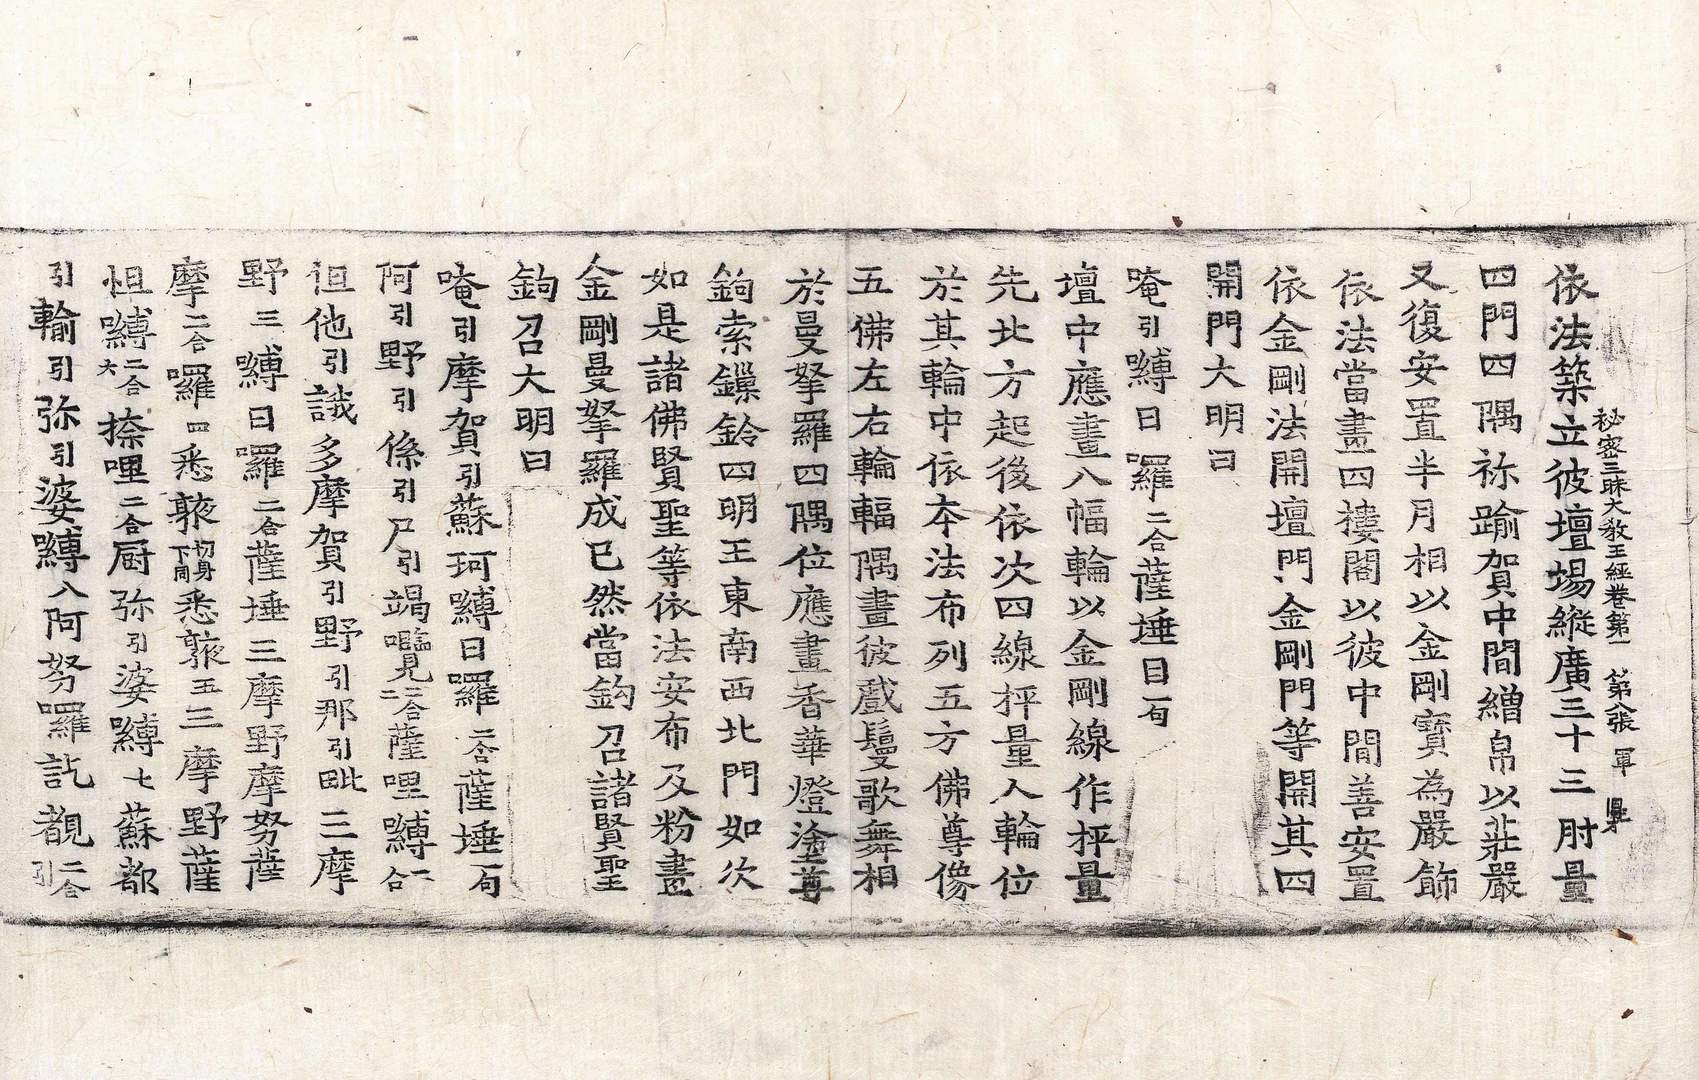 依法築立彼壇場縱廣三十三肘量
秘密三昧大教王經卷第一 第八張 軍
四門四隅祢踰賀中間繒帛以莊嚴
又復安置半月相以金剛寶為嚴飾
依法當畫四樓閣以彼中間善安置
依金剛法開壇門金剛門等開其四
開門大明曰
唵引嚩日囉二合薩埵目一句
壇中應畫八幅輪以金剛線作抨量
先北方起後依次四線抨量人輪位
於其輪中依本法布列五方佛尊像
五佛左右輪輻隅畫彼戲鬘歌舞相
於曼拏羅四隅位應畫香華燈塗尊
鉤索鏁鈴四明王東南西北門如次
如是諸佛賢聖等依法安布及粉畫
金剛曼拏羅成已然當鉤召諸賢聖
鉤召大明曰
唵引摩賀引蘇珂嚩日囉二合薩埵一句
阿引野引係引尸引竭二合薩哩嚩二合
怛他引誐多摩賀引野引那引毗三摩
野三嚩日囉二合薩埵三摩野摩努薩
摩二合囉四悉𨄔切身下同悉𨄔五三摩野薩
怛嚩二合六捺哩二合厨弥引婆嚩七蘇都
引輸引弥引婆嚩八阿努囉訖覩二合引